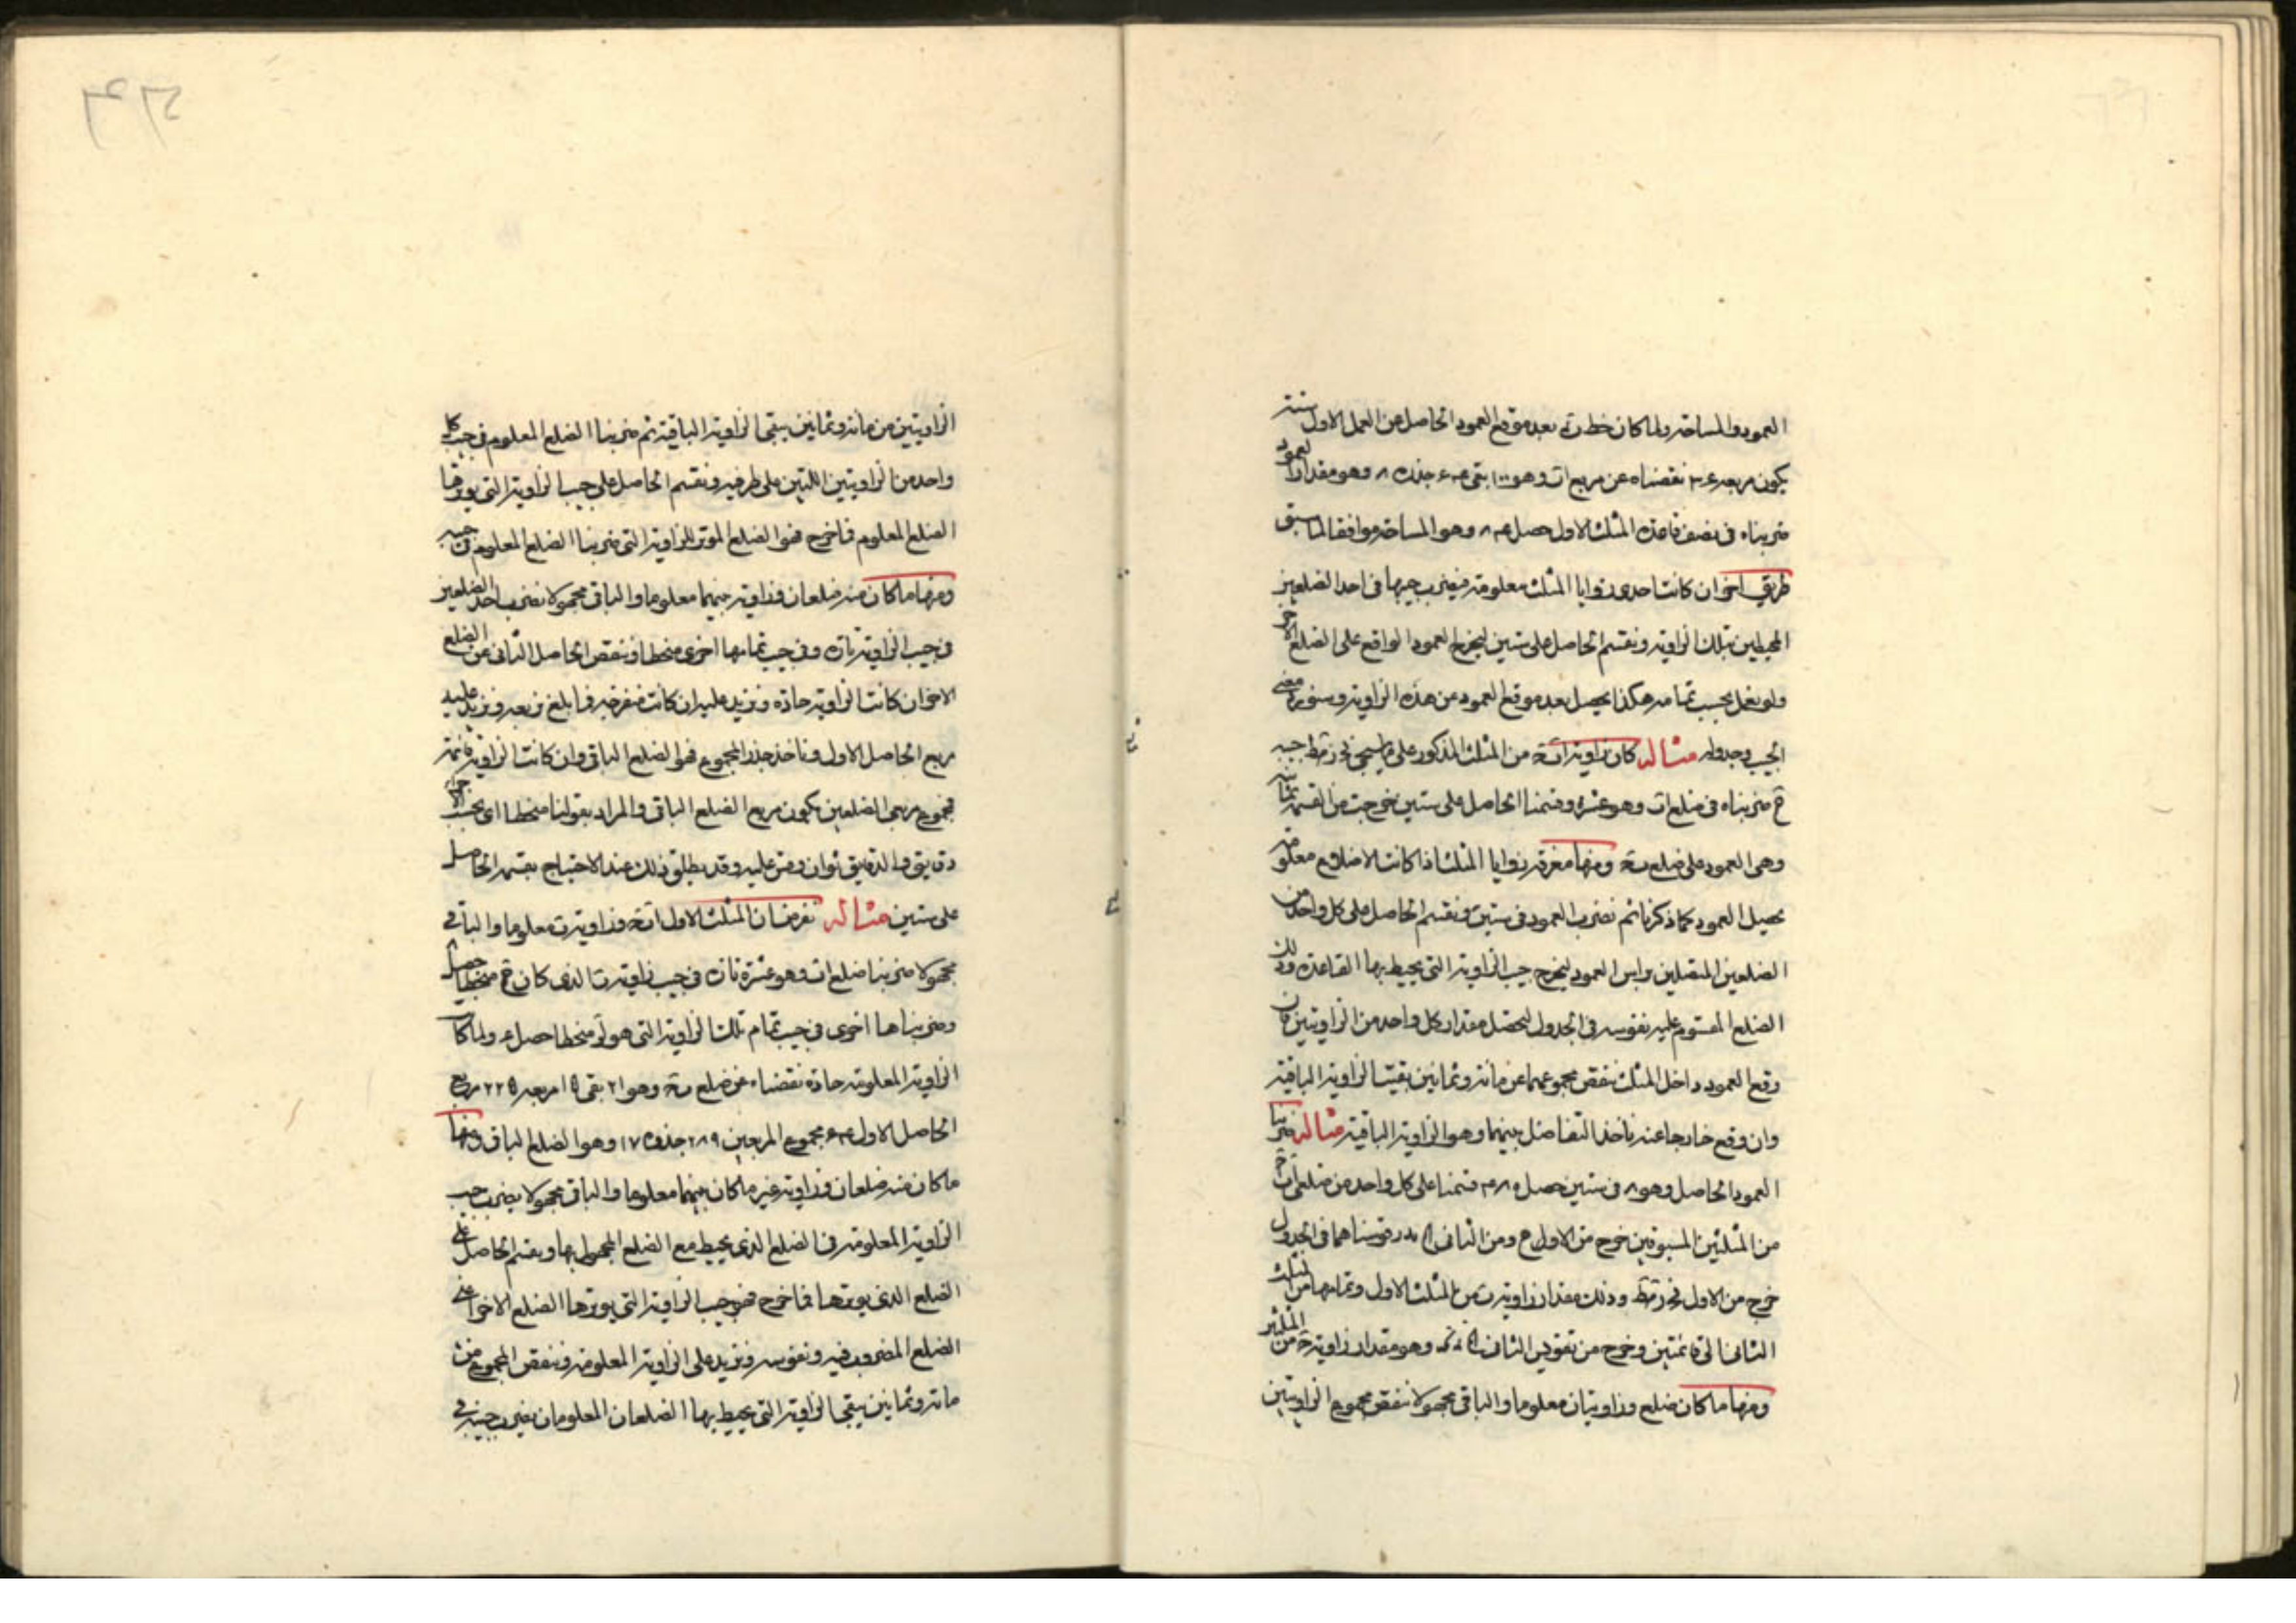 العمود والمساحة ولما كان خط بعد موقع العمود الحاصل من العمل الاول ستة
يكون مربعه ٣٦ نقصناه عن مربع اب وهو ١٠٠ بقى ٦٤ جذره ٨ وهو مقدار العمود
ضربناه فى نصف قاعدة المثلث الاول حصل ٨٤ وهو المساحة موافقا لما سبق
طريق اخر ان كانت احدى زوايا المثلث معلومة فيضرب جيبها فى احد الضلعين
المحيطين بتلك الزاوية ونقسم الحاصل على ستين ليخرج العمود الواقع على الضلع الاخر
ولو نعمل بجيب تمامه هكذا يحصل بعد موقع العمود من هذه الزاوية وسنورد معنى
الجيب وجدوله مثاله كان زاوية من المثلث المذكور على ما سيجئ جيبه
ضربناه فى ضلع اب وهو عشرة وقسمنا الحاصل على ستين خرجت من القسمة ثمانية
وهى العمود على ضلع بج ومنها معرفة زوايا المثلث اذا كانت الاضلاع معلومة
نحصل العمود كما ذكرنا ثم نضرب العمود فى ستين ونقسم الحاصل على كل واحد من
الضلعين المتصلين براس العمود ليخرج جيب الزاوية التى يحيط بها القاعدة وذلك
الضلع المقسوم عليه نقوسه فى الجدول ليحصل مقدار كل واحد من الزاويتين فان
وقع العمود داخل المثلث ننقص مجموعهما عن مائة وثمانين بقيت الزاوية الباقية
وان وقع خارجا عنه ناخذ التفاضل بينهما وهو الزاوية الباقية مثاله ضربنا
العمود الحاصل وهو ٨ فى ستين حصل ٤٨٠ قسمنا على كل واحد من ضلعى
من المثلثين المسبوقين خرج من الاول ومن الثانى قوسناهما فى الجدول
خرج من الاول وذلك مقدار زاوية ب من المثلث الاول وتمامها من المثلث
الثانى الى قائمتين وخرج من تقويس الثانى وهو مقدار زاوية ج من المثلثين
ومنها ما كان ضلع وزاويتان معلوما والباقى مجهولا ننقص مجموع الزاويتين
الزاويتين من مائة وثمانين يبقى الزاوية الباقية ثم ضربنا الضلع المعلوم فى جيب كل
واحد من الزاويتين اللتين على طرفيه ونقسم الحاصل على جيب الزاوية التى يوترها
الضلع المعلوم فما خرج فهو الضلع الموتر للزاوية التى ضربنا الضلع المعلوم فى جيبه
ومنها ما كان منه ضلعان وزاوية بينهما معلوما والباقى مجهولا نضرب احد الضلعين
فى جيب الزاوية تارة وفى جيب تمامها اخرى منحطا وننقص الحاصل الثانى عن الضلع
الاخر ان كانت الزاوية حادة ونزيد عليه ان كانت منفرجة فما بلغ نربعه ونزيد عليه
مربع الحاصل الاول وناخذ جذر المجموع فهو الضلع الباقى وان كانت الزاوية قائمة
فمجموع مربعى الضلعين يكون مربع الضلع الباقى والمراد بقولنا منحطا اى نحسب الاجزاء
دقايق والدقايق ثوان وقس عليه وقد يطلق ذلك عند الاحتياج بقسمة الحاصل
على ستين مثاله نفرض ان المثلث الاول وزاوية ب معلوما والباقى
مجهولا ضربنا ضلع اب وهو عشرة تارة فى جيب زاوية ب الذى كان منحطا حصل
وضربناها اخرى فى جيب تمام تلك الزاوية التى هو لو منحطا حصل ٦ ولما كان
الزاوية المعلومة حادة نقصناه عن ضلع بج وهو ٢١ بقى ١٥ مربعه ٢٢٥ مربع
الحاصل الاول ٦٤ مجموع المربعين ٢٨٩ جذره ١٧ وهو الضلع الباقى ومنها
ما كان منه ضلعان وزاوية غير ما كان بينهما معلوما والباقى مجهولا يضرب جيب
الزاوية المعلومة فى الضلع الذى يحيط مع الضلع المجهول بها ويقسم الحاصل على
الضلع الذى يوترها فما خرج فهو جيب الزاوية التى يوترها الضلع الاخر اعنى
الضلع المضروب فيه ونقوسه ونزيد على الزاوية المعلومة وننقص المجموع من
مائة وثمانين يبقى الزاوية التى يحيط بها الضلعان المعلومان نضرب جيبه فى